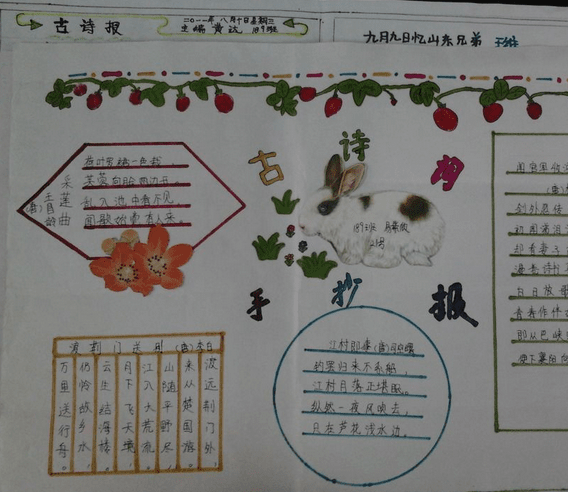 古诗报
二0一一年八月十日星期三
主编 黄达 189班
九月九日忆山东兄弟 王维
古诗
手抄报
189班
21号
采莲曲
(唐)王昌龄
荷叶罗裙一色裁,
芙蓉向脸两边开。
乱入池中看不见,
闻歌始觉有人来。
渡荆门送别 (唐)李白
渡远荆门外,
来从楚国游。
山随平野尽,
江入大荒流。
月下飞天镜,
云生结海楼。
仍怜故乡水,
万里送行舟。
江村即事 (唐)司空曙
钓罢归来不系船,
江村月落正堪眠。
纵然一夜风吹去,
只在芦花浅水边。
闻官军收
(唐)
剑外忽传
初闻涕泪
却看妻子
漫卷诗书
白日放歌
青春作伴
即从巴峡
便下襄阳向